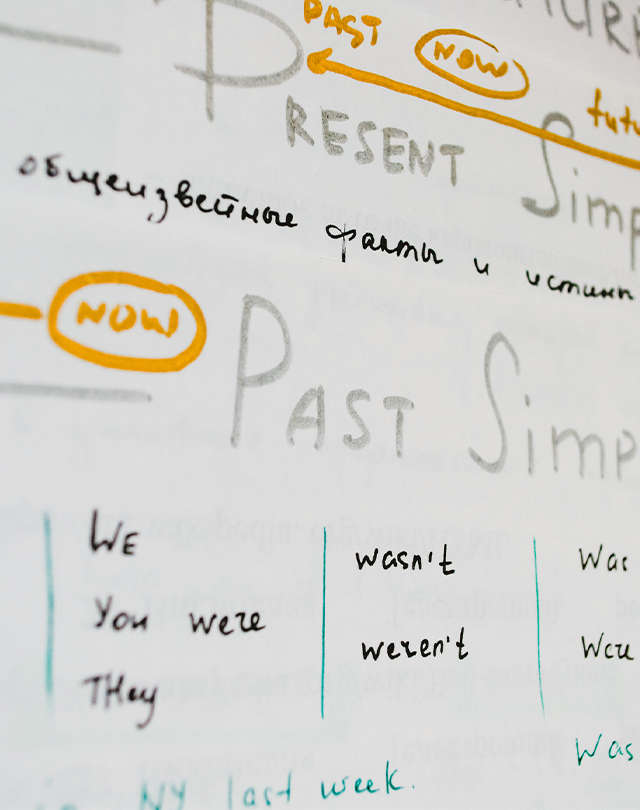 PAST NOW
PRESENT
общеизвестные факты и истины
NOW PAST
WE
You were
THey
wasn't
weren't
Was
NY last week.